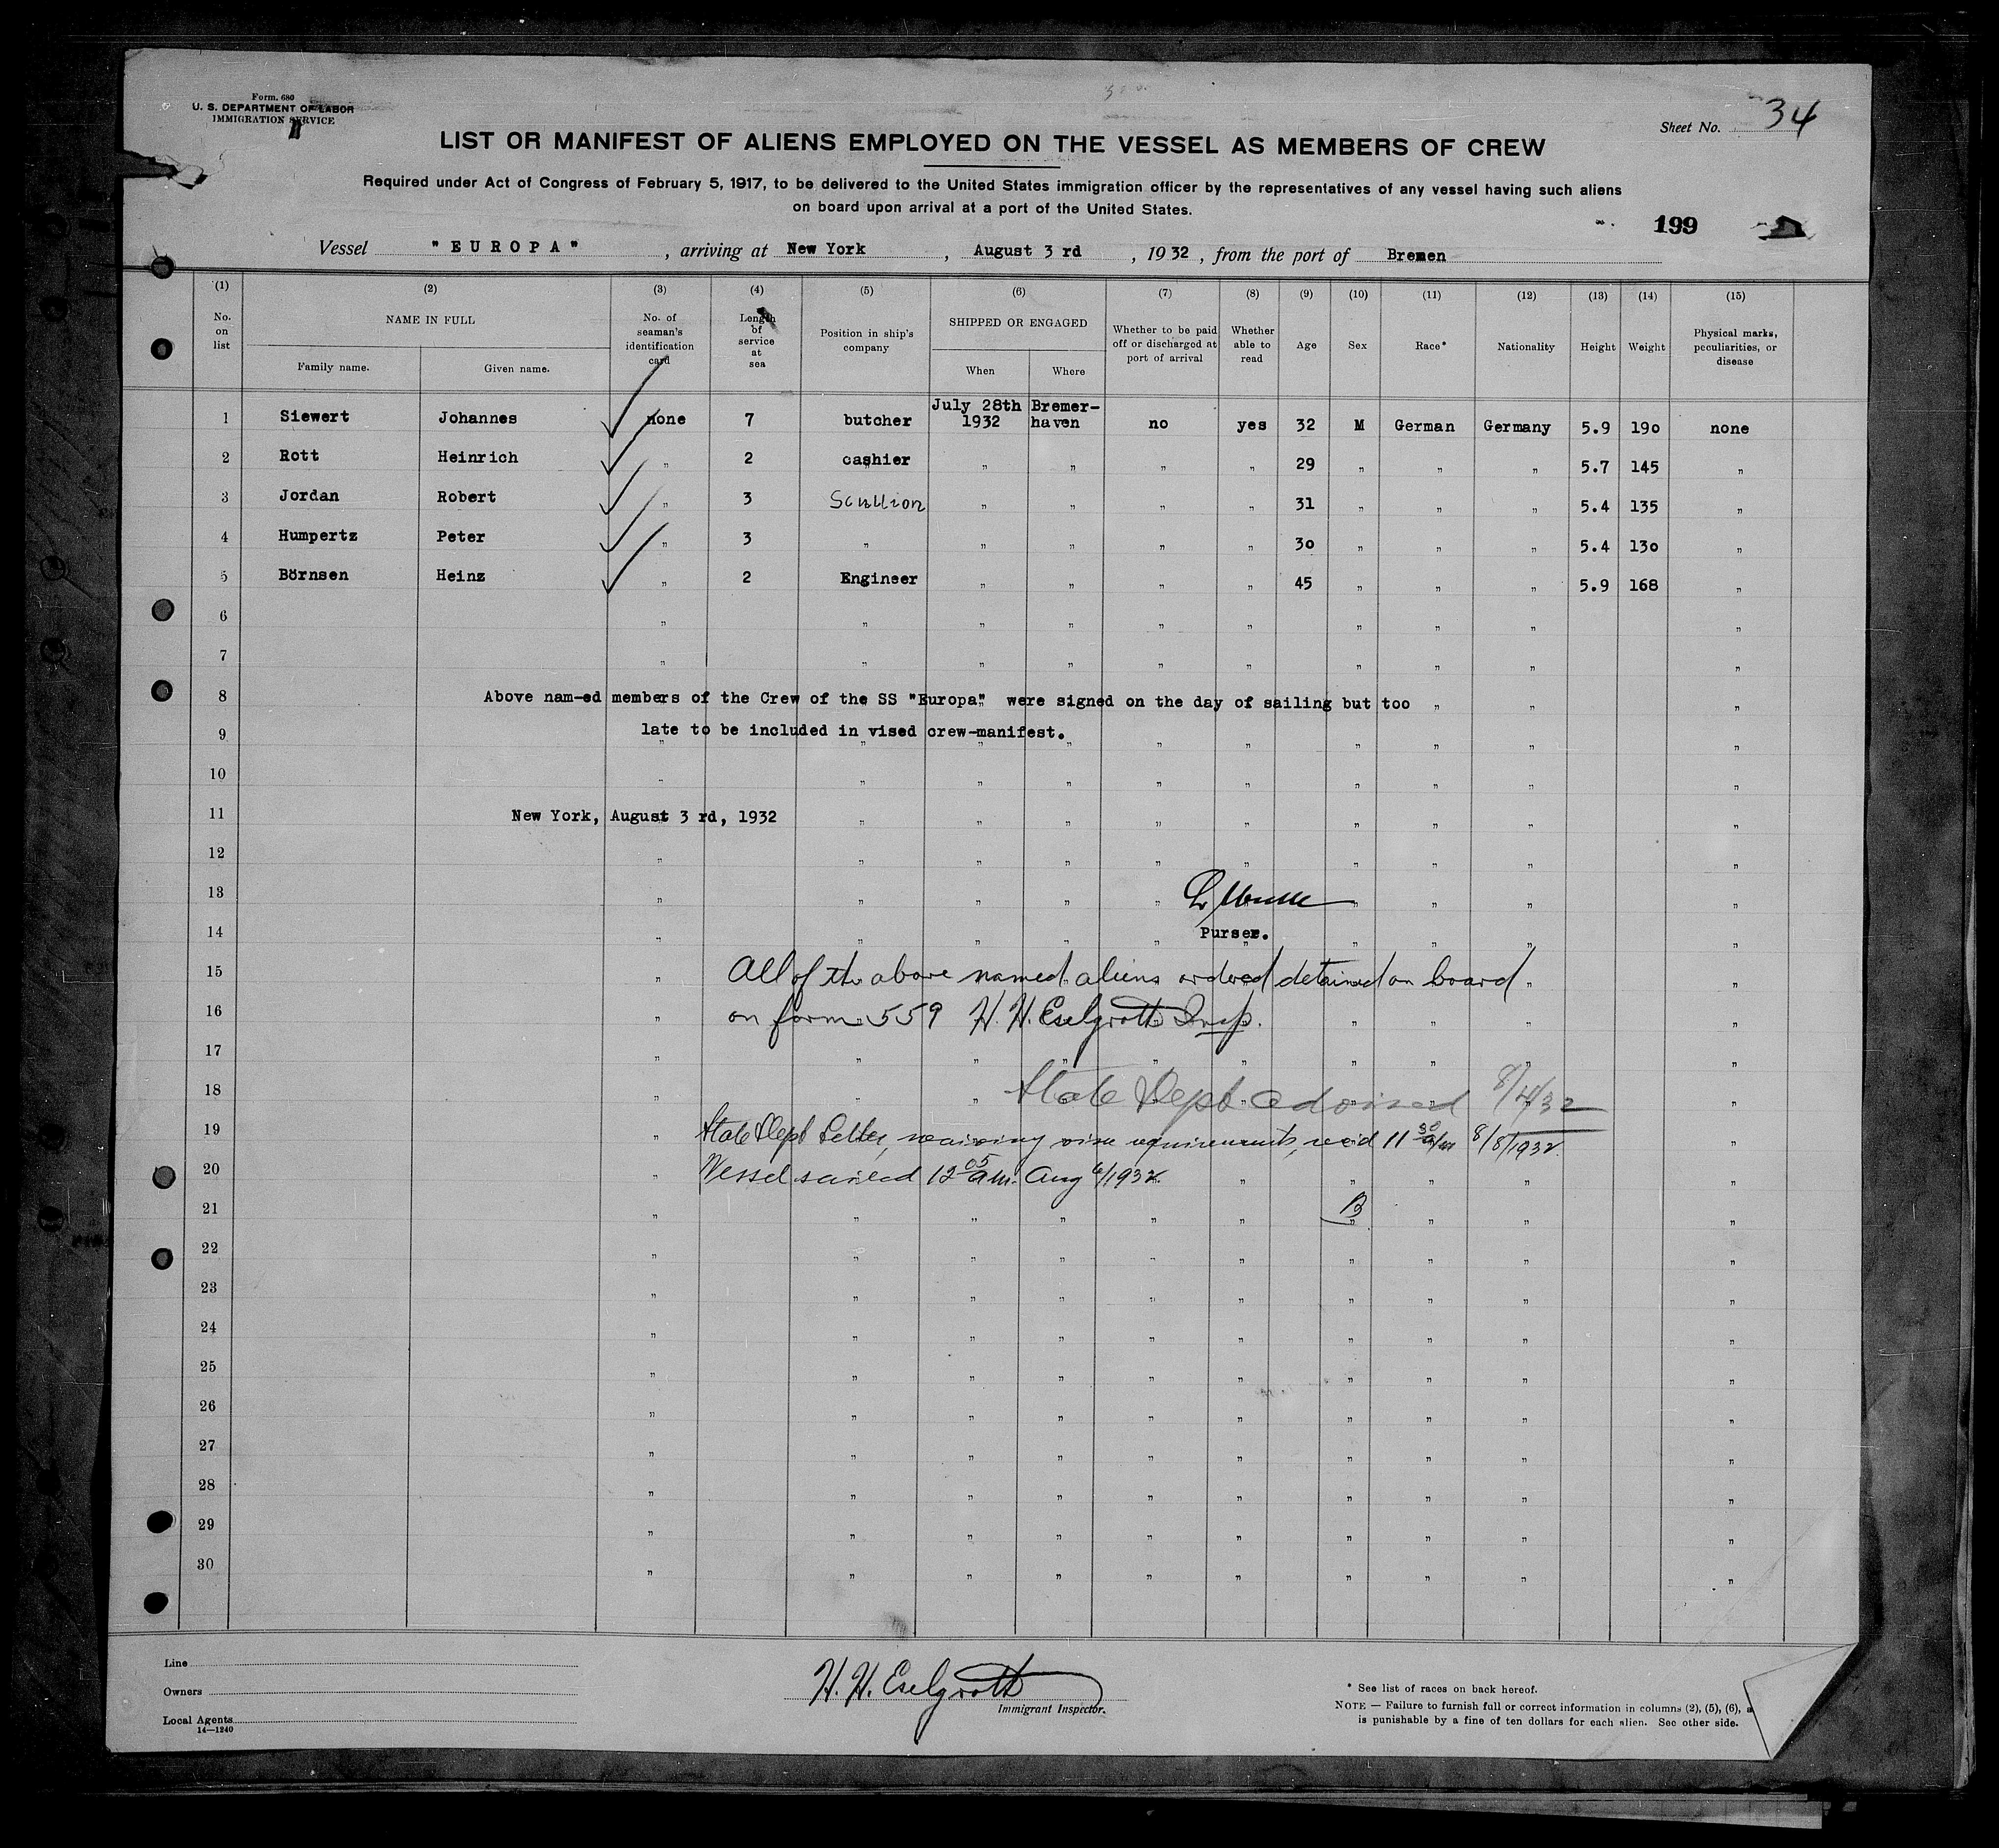 Form. 680
U. S. DEPARTMENT OF LABOR
IMMIGRATION SERVICE
Sheet No. 34
LIST OR MANIFEST OF ALIENS EMPLOYED ON THE VESSEL AS MEMBERS OF CREW
Required under Act of Congress of February 5, 1917, to be delivered to the United States immigration officer by the representatives of any vessel having such aliens
on board upon arrival at a port of the United States.
199
Vessel "EUROPA", arriving at New York, August 3 rd, 1932, from the port of Bremen
(1) (2) (3) (4) (5) (6) (7) (8) (9) (10) (11) (12) (13) (14) (15)
No. on list NAME IN FULL Family name. Given name. No. of seaman's identification card Length of service at sea Position in ship's company SHIPPED OR ENGAGED When Where Whether to be paid off or discharged at port of arrival Whether able to read Age Sex Race* Nationality Height Weight Physical marks, peculiarities, or disease
1 Siewert Johannes none 7 butcher July 28th 1932 Bremer-haven no yes 32 M German Germany 5.9 190 none
2 Rott Heinrich " 2 cashier " " " " 29 " " " 5.7 145 "
3 Jordan Robert " 3 Scullion " " " " 31 " " " 5.4 135 "
4 Humpertz Peter " 3 " " " " " 30 " " " 5.4 130 "
5 Börnsen Heinz " 2 Engineer " " " " 45 " " " 5.9 168 "
6 " " " " " " " " " "
7 " " " " " " " " " "
8 Above nam-ed members of the Crew of the SS "Europa" were signed on the day of sailing but too " " "
9 late to be included in vised crew-manifest. " " " " " "
10 " " " " " " " " " "
11 New York, August 3 rd, 1932 " " " " " " " " "
12 " " " " " " " " " "
13 " " " " " " " "
14 " " " " " Purser. " " " "
15 " All of the above named aliens ordered detained on board " "
16 " on form 559 H. H. Eselgroth Insp. " " " "
17 " " " " " " " " " "
18 " " " State Dept advised 8/4/32 "
19 " State Dept Letter, waiving visa requirements, rec'd 11 30 a/m 8/8/1932 "
20 " Vessel sailed 12 05 a.m. Aug 6/1932 " " " " "
21 " " " " " " B " " "
22 " " " " " " " " " "
23 " " " " " " " " " "
24 " " " " " " " " " "
25 " " " " " " " " " "
26 " " " " " " " " " "
27 " " " " " " " " " "
28 " " " " " " " " " "
29 " " " " " " " " " "
30 " " " " " " " " " "
Line
Owners
Local Agents
14—1240
H. H. Eselgroth
Immigrant Inspector.
* See list of races on back hereof.
NOTE — Failure to furnish full or correct information in columns (2), (5), (6), a
is punishable by a fine of ten dollars for each alien. See other side.